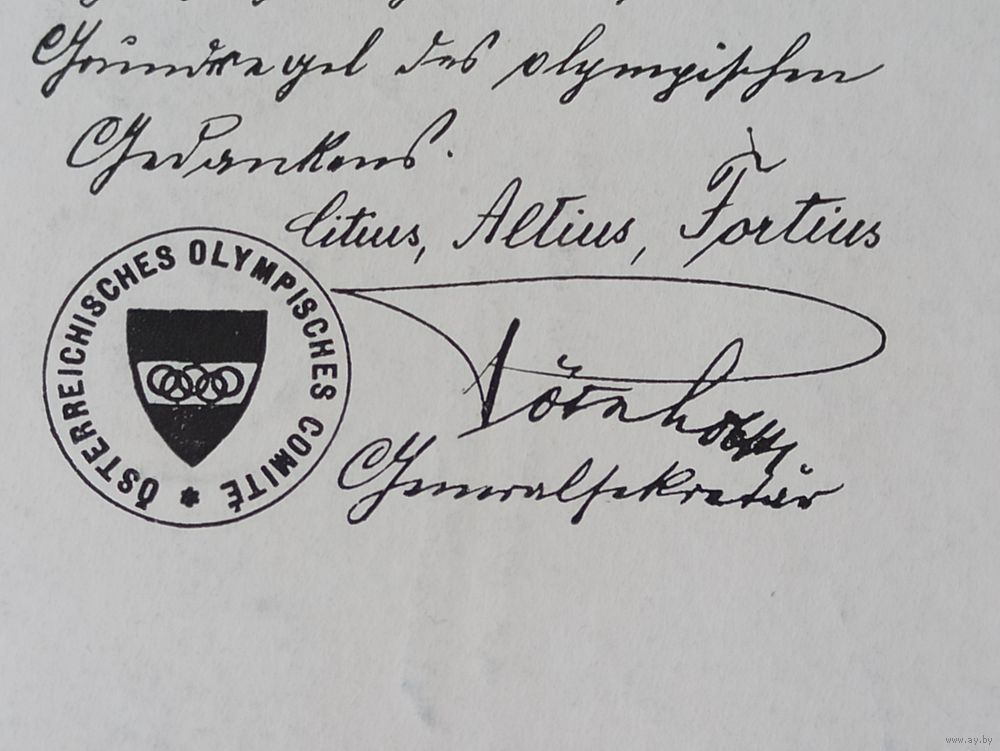 Grundregel des olympischen
Gedankens.
Citius, Altius, Fortius
ÖSTERREICHISCHES OLYMPISCHES COMITÉ *
Generalsekretär
www.ay.by